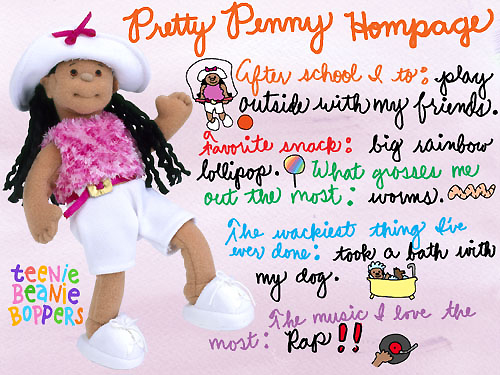 Pretty Penny Hompage
After school I to: play
outside with my friends.
Favorite snack: big rainbow
lollipop. What grosses me
out the most: worms.
The wackiest thing I've
ever done: took a bath with
my dog.
The music I love the
most: Rap!!
teenie
Beanie
Boppers